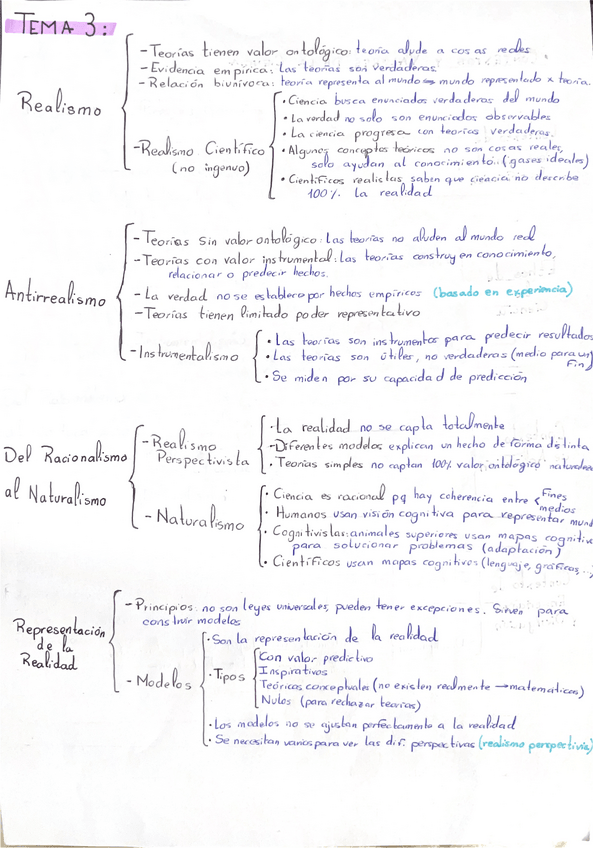 TEMA 3:
Realismo
- Teorías tienen valor ontológico: teoría alude a cosas reales.
- Evidencia empírica: Las teorías son verdaderas.
- Relación biunívoca: teoría representa al mundo → mundo representado x teoría.
- Realismo Científico
(no ingenuo)
• Ciencia busca enunciados verdaderas del mundo
• La verdad no solo son enunciados observables
• La ciencia progresa con teorías verdaderas.
• Algunos conceptos teóricos no son cosas reales,
solo ayudan al conocimiento. (gases ideales)
• Científicos realistas saben que ciencia no describe
100% la realidad
Antirrealismo
- Teorías sin valor ontológico: Las teorías no aluden al mundo real
- Teorías con valor instrumental: las teorías construyen conocimiento,
relacionar o predecir hechos.
- La verdad no se establece por hechos empíricos (basado en experiencia)
- Teorías tienen limitado poder representativo
- Instrumentalismo
• Las teorías son instrumentos para predecir resultados
• Las teorías son útiles, no verdaderas (medio para un
fin)
• Se miden por su capacidad de predicción
Del Racionalismo
al Naturalismo
- Realismo
Perspectivista
• La realidad no se capta totalmente
- Diferentes modelos explican un hecho de forma distinta
• Teorías simples no captan 100% valor ontológico
- Naturalismo
• Ciencia es racional pq hay coherencia entre < Fines
medios
• Humanos usan visión cognitiva para representar mund
• Cognitivistas: animales superiores usan mapas cognitiv
para solucionar problemas (adaptación)
• Científicos usan mapas cognitivos (lenguaje, gráficos...)
Representación
de la
Realidad
- Principios: no son leyes universales, pueden tener excepciones. Sirven para
construir modelos
- Modelos
• Son la representación de la realidad
• Tipos
Con valor predictivo
Inspirativos
Teóricos conceptuales (no existen realmente → matemáticos)
Nulos (para rechazar teorías)
• Los modelos no se ajustan perfectamente a la realidad
• Se necesitan varios para ver las dif. perspectivas (realismo perspectivis)